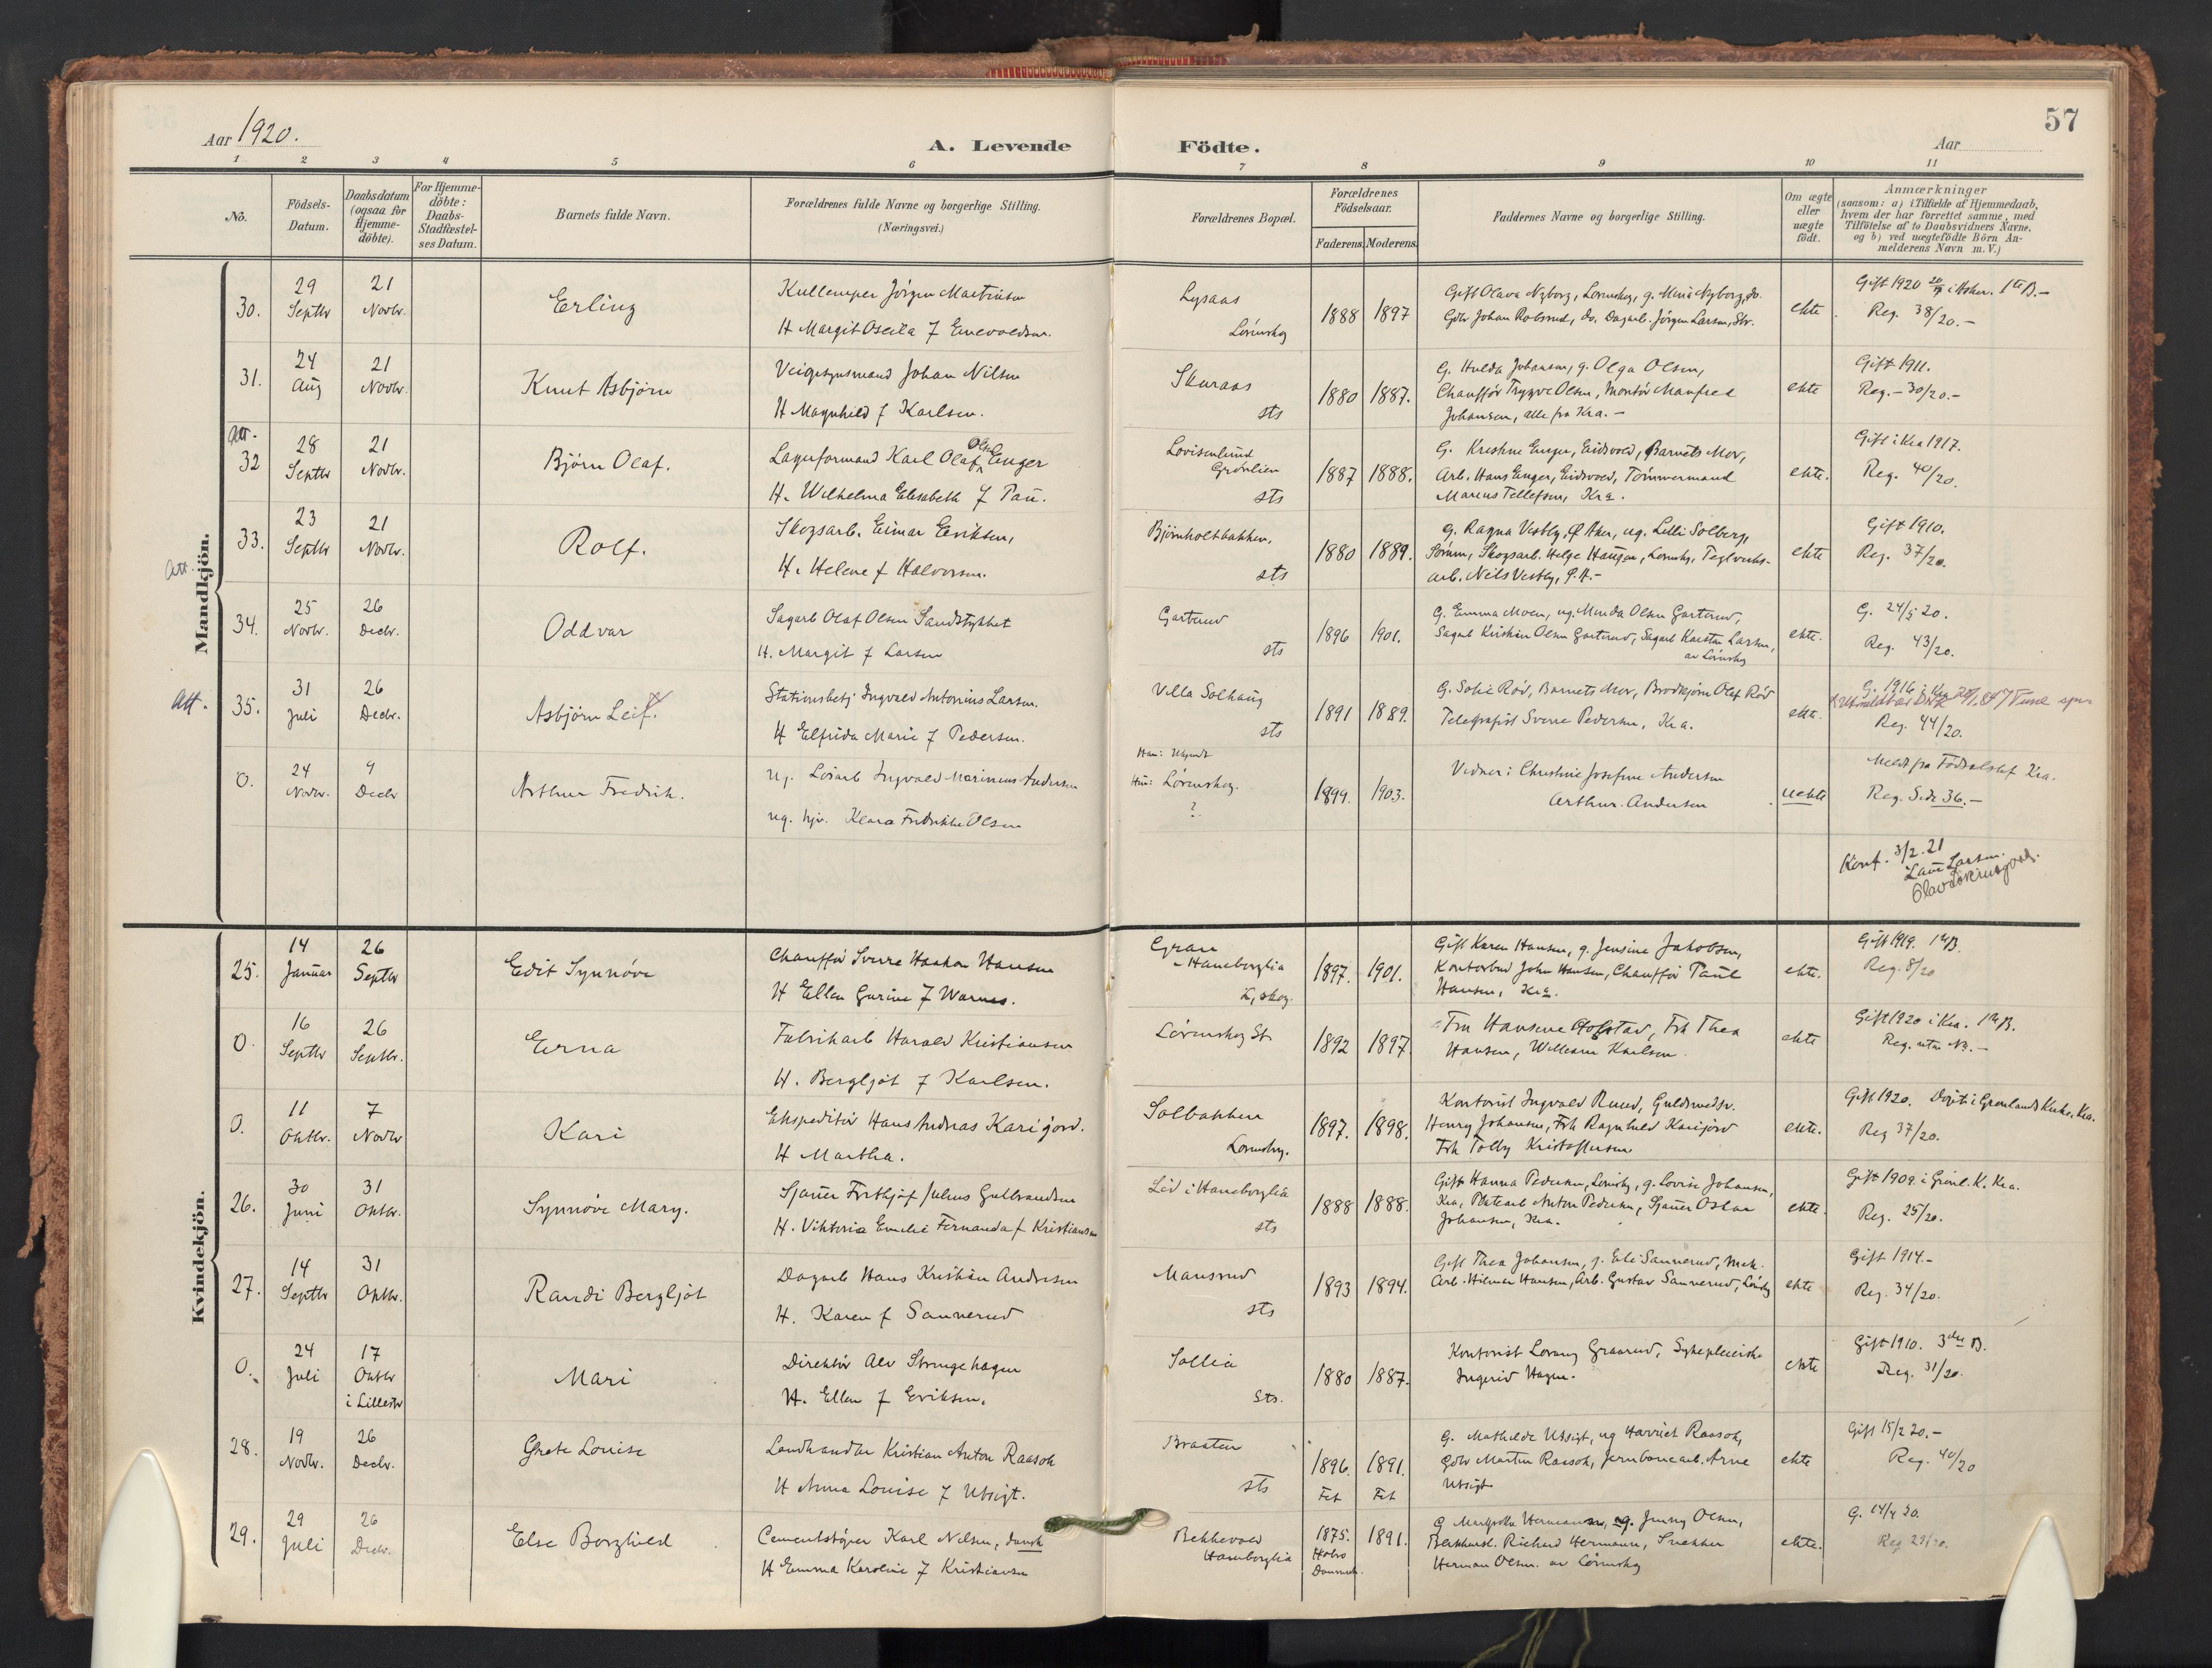 57
Aar 1920.
A. Levende Födte.
Aar
1 2 3 4 5 6 7 8 9 10 11
No.
Födsels-
Datum.
Daabsdatum
(ogsaa for
Hjemme-
döbte).
For Hjemme-
döbte:
Daabs-
Stadfæstel-
ses Datum.
Barnets fulde Navn.
Forældrenes fulde Navne og borgerlige Stilling.
(Næringsvei.)
Forældrenes Bopæl.
Forældrenes
Födselsaar.
Faderens. Moderens.
Faddernes Navne og borgerlige Stilling.
Om ægte
eller
uægte
födt.
Anmærkninger
(saasom: a) i Tilfælde af Hjemmedaab,
hvem der har forrettet samme, med
Tilföielse af to Daabsvidners Navne,
og b) ved uægtefödte Börn An-
melderens Navn m. V.)
Mandkjön.
30.
29
Septbr
21
Novbr.
Erling
Jörgen Martinsen
H Margit
Lysaas
Lörenskog
1888 1897
Gift Olava Nyborg, Lørenskog, g. Nyborg, do.
Johan Robsrud, do. Dagarb. Jörgen Larsen, Str.
ekte
Gift 1920 i Asker. 1ste B.-
Reg. 38/20.-
31.
24
Aug
21
Novbr.
Knut Asbjörn
Johan Nilsen
H Magnhild f Karlsen.
Skuraas
sts
1880 1887.
G. Hulda Johansen, g. Olga Olsen,
Chaufför Trygve Olsen, Montör Manfred
Johansen, alle fra Kra.-
ekte
Gift 1911.
Reg.- 30/20.-
Att.
32
28
Septbr
21
Novbr.
Björn Olaf.
Lagerformand Karl Olaf Olsen Enger
H. Wilhelma Elisabeth f Tau.
Lovisenlund
Grönlien
sts
1887 1888.
G. Kristine Enger, Eidsvold, Barnets Mor,
Arb. Hans Enger, Eidsvold, Tömmermand
Marius Tellefsen, Kra.
ekte.
Gift i Kra 1917.
Reg. 40/20.
Att.
33.
23
Septbr
21
Novbr.
Rolf.
Skogsarb. Einar Eriksen,
H. Helene f Halvorsen.
Björnholtbakken,
sts
1880 1889.
G. Ragna Vestby, Ø Aker, ug. Lilli Solberg,
Sörum, Skogsarb. Helge Haugen, Lørenskg, Teglverks-
arb. Nils Vestby, Ø.A.-
ekte
Gift 1910.
Reg. 37/20.
34.
25
Novbr.
26
Decbr.
Oddvar
Sagarb Olaf Olsen Sandstykket
H. Margit f Larsen
Garterud
sts
1896 1901.
G. Emma Moen, ug. Minda Olsen Garterud,
Sagarb Kristian Olsen Garterud, Sagarb Karsten Larsen,
av Lörenskog
ekte.
G. 24/5 20.
Reg. 43/20.
Att.
35.
31
Juli
26
Decbr.
Asbjörn Leif.
Stationsbetj Ingvald Antonius Larsen.
H Elfrida Marie f Pedersen.
Villa Solhaug
sts
1891 1889.
G. Sofie Röd, Barnets Mor, Brodkjörer Olaf Röd
Telegrafist Sverre Pedersen, Kra.
ekte.
G. 1916 i Kra
Reg. 44/20.
0.
24
Novbr.
9
Decbr
Arthur Fredrik.
Ug. Lösarb Ingvald Marinius Andersen
ug. hjv. Klara Fredrikke Olsen
Han: Ukjendt
Hun: Lörenskog.
?
1899. 1903.
Vidner: Christine Josefine Andersen
Arthur Andersen
uekte
Meldt fra Födselsstif Kra.
Reg. Side 36.-
Konf. 3/2.21
Larsen.
Kvindekjön.
25.
14
Januar
26
Septbr
Edit Synnöve
Chaufför Sverre Haakon Hansen
H Ellen Gurine f Warnes.
Gran
Haneborglia
L,skog.
1897. 1901.
Gift Karen Hansen, g. Jensine Jakobsen,
Kontorbud John Hansen, Chaufför Paul
Hansen, Kra.
ekte.
Gift 1919. 1ste B.
Reg. 8/20
0.
16
Septbr
26
Septbr.
Erna
Fabrikarb Harald Kristiansen
H. Bergljot f Karlsen.
Lörenskog St.
1892 1897
Fru Hansine Hofstad, Frk Thea
Hansen, William Karlsen.
ekte
Gift 1920 i Kra. 1ste B.
Reg. uten No.-
0.
11
Oktbr.
7
Novbr
Kari
Ekspeditör Hans Andreas Karijord.
H Martha.
Solbakken
Lørenskg.
1897. 1898.
Kontorist Ingvald Ruud, Guldsmedsv.
Henry Johansen, Frk Ragnhild Karijord
Frk Tolly Kristoffersen.
ekte.
Gift 1920. Döpt i Grönlands Kirke, Kra.
Reg 37/20.
26.
30
Juni
31
Oktbr.
Synnöve Mary.
Sjauer Frithjof Julius Gulbrandsen
H. Viktoria Emilie Fernanda f Kristiansen
Lid i Haneborglia
sts
1888 1888.
Gift Hanna Pedersen, Lörenskg, g. Lovise Johansen,
Kra, Anton Pedersen, Sjauer Oskar
Johansen, Kra.
ekte.
Gift 1909. i Grönl. K. Kra.
Reg. 25/20.
27.
14
Septbr
31
Oktbr.
Randi Bergljot
Dagarb Hans Kristian Andersen
H. Karen f Sannerud
Mansrud
sts
1893 1894.
Gift Thea Johansen, g. Eli Sannerud, Mek.
Arb. Hilmar Hansen, Arb. Gustav Sannerud, Lörskg
ekte
Gift 1914.-
Reg. 34/20.
0.
24
Juli
17
Oktbr
i Lillestr
Mari
Direktör Alv Strengehagen
H. Ellen f Eriksen.
Sollia
sts.
1880 1887.
Kontorist Graarud, Sykepleierske
Ingerid Hagen.
ekte
Gift 1910. 3die B.
Reg. 31/20.
28.
19
Novbr.
26
Decbr.
Grete Louise
Landhandler Kristian Anton Raasok
H Anna Louise f Utsigt.
Braaten
sts
1896. 1891.
Fet Fet
G. Mathilde Utsigt, ug Harriet Raasok,
Gdbr Martin Raasok, Jernbanearb. Arne
Utsigt
ekte
Gift 15/2 20.-
Reg. 40/20
29.
29
Juli
26
Decbr.
Else Borghild
Cementstöper Karl Nilsen, dansk
H Emma Karoline f Kristiansen
Bekkevold
Haneborglia
1875. 1891.
Hobro
Danmark.
G. Hermansen, ug. Jenny Olsen,
Richard Hermansen, Snekker
Herman Olsen. av Lörenskog
ekte.
G. 14/4 20.
Reg 29/20.